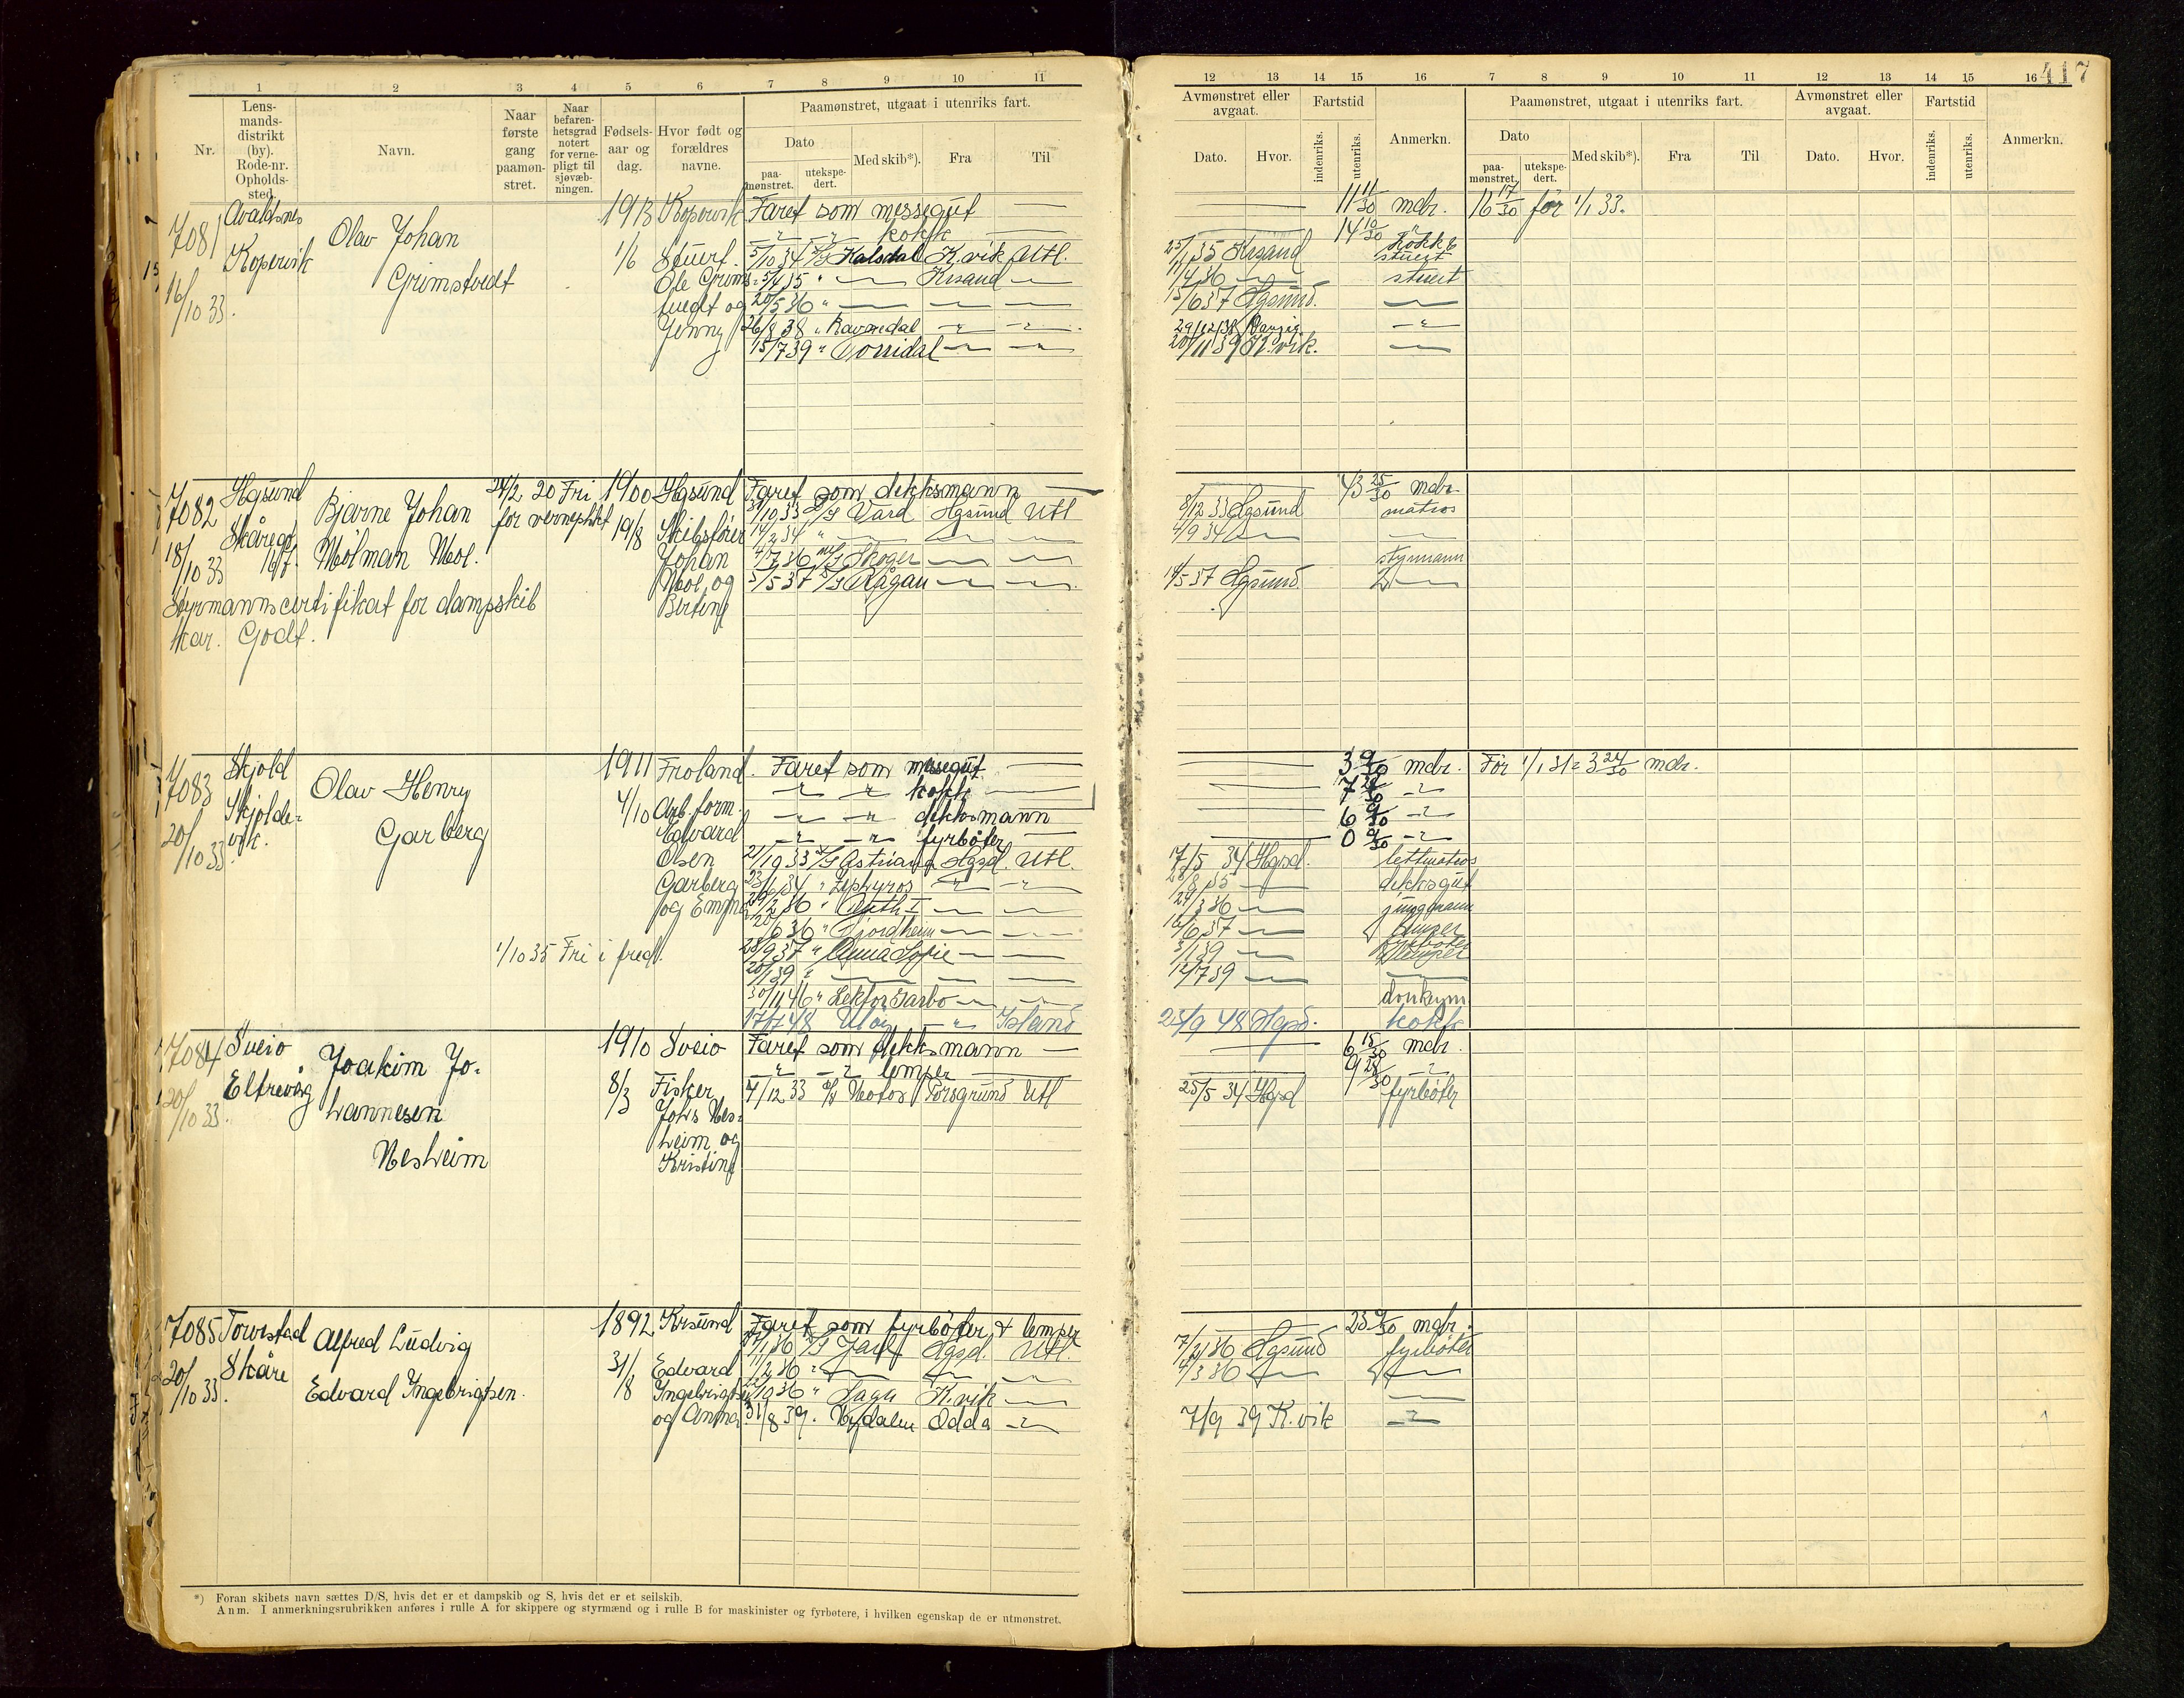 1 2 3 4 5 6 7 8 9 10 11
Nr.
Lens-
mands-
distrikt
(by).
Rode-nr.
Opholds-
sted.
Navn.
Naar
første
gang
paamøn-
stret.
Naar
befaren-
hetsgrad
notert
for verne-
pligt til
sjøvæb-
ningen.
Fødsels-
aar og
dag.
Hvor født og
forældres
navne.
Paamønstret, utgaat i utenriks fart.
Dato
paa-
mønstret.
utekspe-
dert.
Med skib*).
Fra
Til
7081
16/10 33.
Avaldsnes
Kopervik
Olav Johan
Grimstvedt
1913
1/6
Kopervik
Stuert.
Ole Grims-
tvedt og
Jenny
Faret som messegut
—"— —"— kokk
5/10 34 D/S Kalsdal K.vik Utl.
5/4 35 " — Krsand —
20/5 36 " — — —
26/8 38 " Ravnedal —"— —"—
15/7 39 " Torridal —"— —"—
7082
18/10 33
Hgsund
Skåregt.
16/7.
Bjarne Johan
Mølman Mol.
24/2 20 Fri
for verneplikt
1900
19/8
Hgsund
Skibsfører
Johan
Mol og
Berting
Faret som dekksmann
31/10 33 D/S Vard Hgsund Utl
14/2 34 " — — —
4/7 36 M/S Skoger — —
5/5 37 D/S Kågau — —
Styrmannscertifikat for dampskib
kar. Godt.
7083
20/10 33
Skjold
Skjolde-
vik.
Olav Henry
Garberg
1/10 35 Fri i fred.
1911
4/10
Froland.
Arb.form.
Edvard
Olsen
Garberg
og Emma
Faret som messegut
—"— —"— kokk
—"— —"— dekksmann
—"— —"— fyrbøter
21/10 33 D/S Astriana Hgsd. Utl.
23/6 34 " Zephyros —"— —"—
/2 36 " Ruth I — —
/6 36 " Fjordheim — —
23/9 37 " Anna Sofie — —
20/1 39 " — — —
30/11 46 " Lektor Garbo — —
17/7 48 Utöy — " — Island
7084
20/10 33.
Sveio
Eltrevåg
Joakim Jo-
hannesen
Nesheim
1910
8/3
Sveio
Fisker
Johs Nes-
heim og
Kristine
Faret som dekksmann —
—"— —"— lemper
4/12 33 D/S Notos Porsgrund Utl
7085
20/10 33.
Torvestad
Skåre
Alfred Ludvig
Edvard Ingebrigtsen.
1892
31/8
Krsund
Edvard
Ingebrigtsen
og Anna
Faret som fyrbøter & lemper
/1 36 D/S Jarl Hgsd. Utl.
11/2 36 " — — —
/10 36 " Saga K.vik —
31/8 39. Nydalen Odda —"—
*) Foran skibets navn sættes D/S, hvis det er et dampskib og S, hvis det er et seilskib.
Anm. I anmerkningsrubrikken anføres i rulle A for skippere og styrmænd og i rulle B for maskinister og fyrbøtere, i hvilken egenskap de er utmønstret.
12 13 14 15 16 7 8 9 10 11 12 13 14 15 16 417
Avmønstret eller
avgaat.
Dato. Hvor.
Fartstid
indenriks. utenriks.
Anmerkn.
Paamønstret, utgaat i utenriks fart.
Dato
paa-
mønstret.
utekspe-
dert.
Med skib*). Fra Til
Avmønstret eller
avgaat.
Dato. Hvor.
Fartstid
indenriks. utenriks.
Anmerkn.
11 11/30 mdr. 16 17/30 før 1/1 33.
14 10/30 —"—
25/1 35 Krsand kokk & stuert
11/4 36 — stuert
15/6 37 Hgsund. —
29/12 38 Danzig —"—
20/11 39 K.vik. —
43 25/30 mdr.
8/12 33 Hgsund matros
4/9 34 — —
styrmann
14/5 37 Hgsund. —
3 9/30 mdr. Før 1/1 31 = 3 24/30 mdr.
7 24/30 —"—
6 9/30 —"—
0 9/30 —"—
17/5 34 Hgsd. lettmatros
/8 35 — dekksgut
29/3 36 — jungmann
16/6 37 — lemper
3/1 39 — fyrbøter
lemper
12/7 39 — —
donkym.
25/9 48 Hgsd. kokk
6 15/30 mdr.
9 28/30 —"—
25/5 34 Hgsd fyrbøter
23 9/30 mdr.
7/2 36 Hgsund fyrbøter
4/3 36 — —
—
7/9 39 K.vik —"—